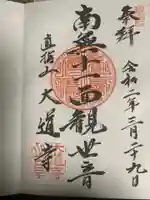 奉拝
令和二年三月二十九日
南無十一面観世音
直指山 大道寺